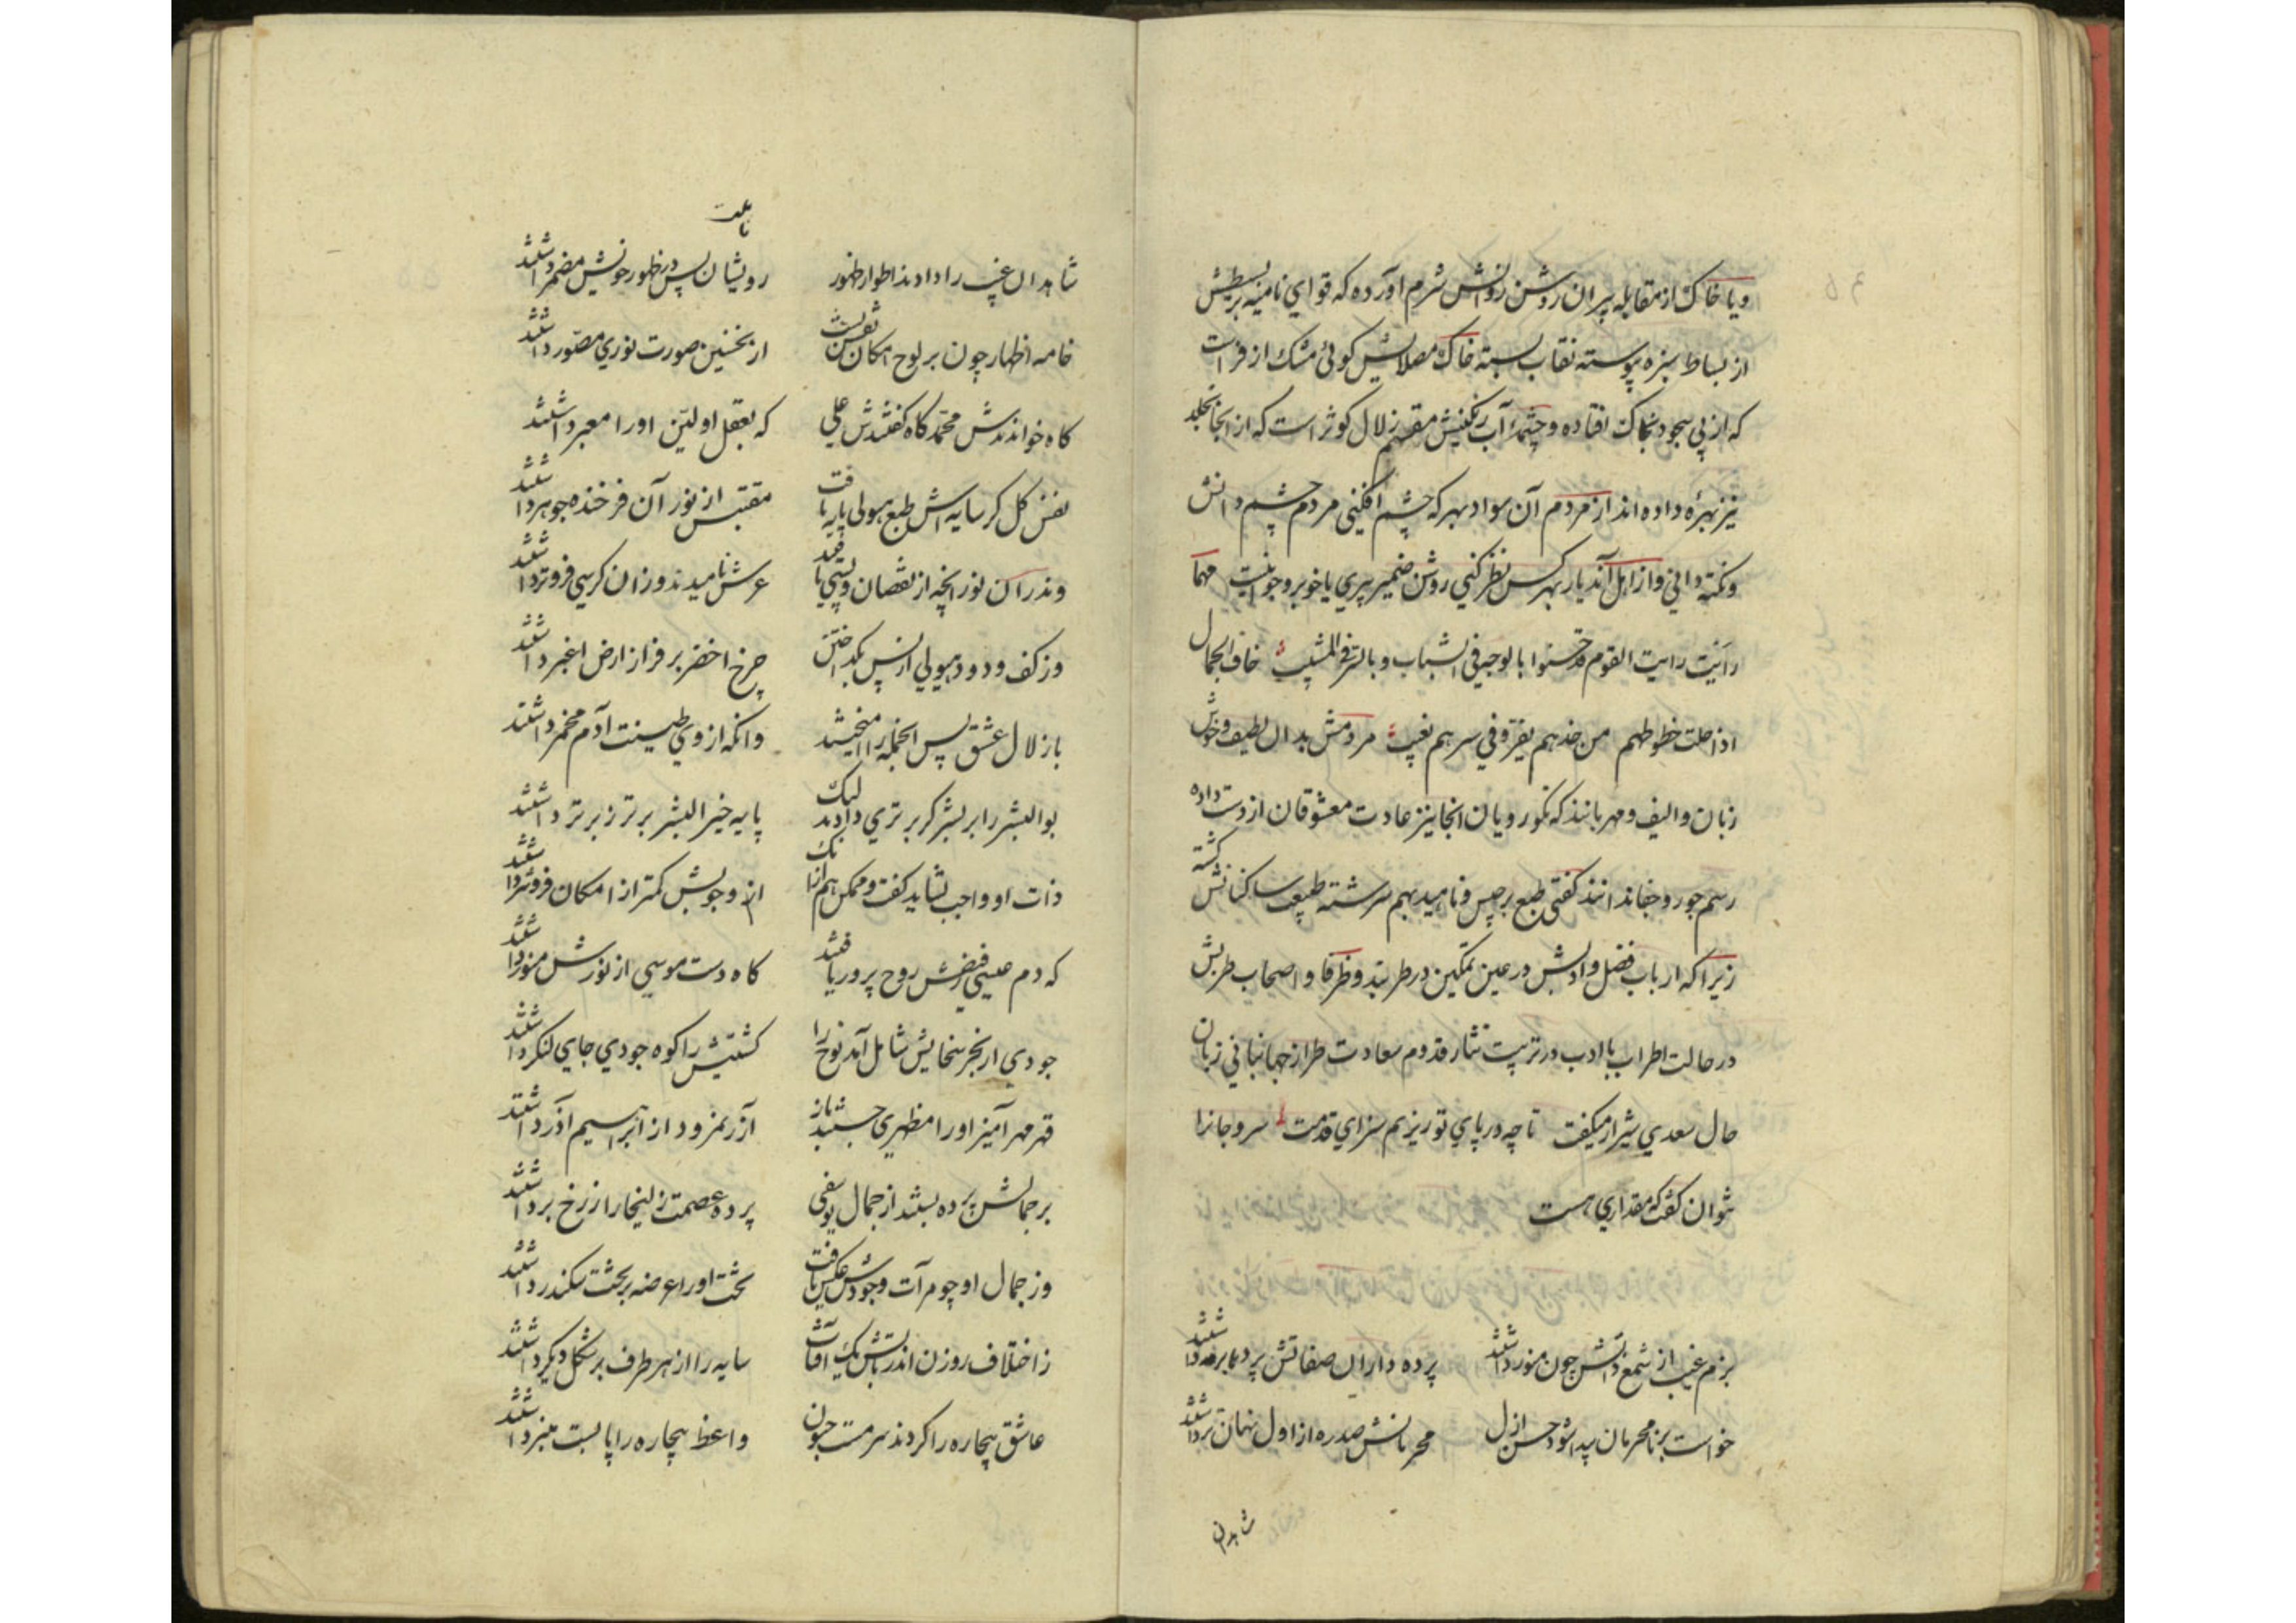 و یا خاک از مقابله پیران روشن روانش شرم آورده که قوای نامیه بر بسیطش
از بساط سبزه پیوسته نقاب بسته خاک مصلایش کوئی مشک ازفر است
که از پی سجود بخاک افتاده و چشمهٔ آب رنگینش مقسم زلال کوثر است که از آنجا بخلد
نیز بهرهٔ داده‌اند از مردم آن سواد بهر که چشم افکنی مردم چشم دانش
و نکته دانی و از اهل آن دیار بهر کس نظر کنی روشن ضمیر پیری یا خوبرو جوانیست مهما
رأیت رایت القوم قد حسنوا بالوجه فی الشباب و بالسر فی المشیب خاف الجمال
اذا حلت خطوطهم من خدهم یقر و فی سرهم نغیب مردمش بدان لطیف و خوش
زبان و الیف و مهربانند که نکو رویان آنجا نیز عادت معشوقان از دست داده
رسم جور و جفا ندانند کفتی طبع برجیس و ناهید بهم سرشته طبیعت ساکنانش کشته
زیرا که ارباب فضل و ادبش در عین تمکین در طربند و ظرفا و اصحاب طربش
در حالت اطراب با ادب در ترتیب نثار قدوم سعادت طراز جهانبانی زبان
حال سعدی شیراز میکفت تا چه در پای تو ریزم سزای قدمت سر و جانرا
نتوان کفت که مقداری هست
بزم غیب از شمع ذاتش چون منور داشتند پرده داران صفاتش پرده‌ها بر در داشتند
خواست بر نامحرمان پیدا شود حسن ازل محرمانش صد ره از اول نهان‌تر داشتند
شاهدان
شاهدان غیب را دادند اطوار ظهور رویشان پس در ظهور خویش مضمر داشتند
خامه اظهار چون بر لوح امکان نقش بست از نخستین صورت نوری مصور داشتند
کاه خواندندش محمد کاه کفتندش علی که بعقل اولین او را معبر داشتند
نفس کل کز سایه اش طبع هیولی پایه یافت مقتبس از نور آن فرخنده جوهر داشتند
وندر آن نور آنچه از نقصان و پستی یافتند عرش نامیدند و زان کرسی فروتر داشتند
وز کف و دود هیولی از پس بگداختن چرخ اخضر بر فراز ارض اغبر داشتند
باز لال عشق پس آنجمله را آمیختند وانکه از وی طینت آدم مخمر داشتند
بوالبشر را بر بشر کر برتری دادند لیک پایه خیر البشر برتر ز برتر داشتند
ذات او واجب نشاید کفت و ممکن هم از آنک از وجوبش کمتر از امکان فروتر داشتند
که دم عیسی ز فیضش روح پرور یافتند کاه دست موسی از نورش منور داشتند
جودی از بحر سخایش شامل آمد نوح را کشتیش را کوه جودی جای لنکر داشتند
قهر مهر آمیز او را مظهری جستند باز آزر نمرود از ابراهیم آذر داشتند
بر جمالش پرده بستند از جمال یوسفی پرده عصمت زلیخا را ز رخ بر داشتند
وز جمال او چو مرآت وجودش عکس یافت تخت او را عرضه بر تخت سکندر داشتند
ز اختلاف روزن اندر تابش یک آفتاب سایه را از هر طرف بر شکل دیکر داشتند
عاشق بیچاره را کردند سرمست جنون واعظ بیچاره را پا بست منبر داشتند